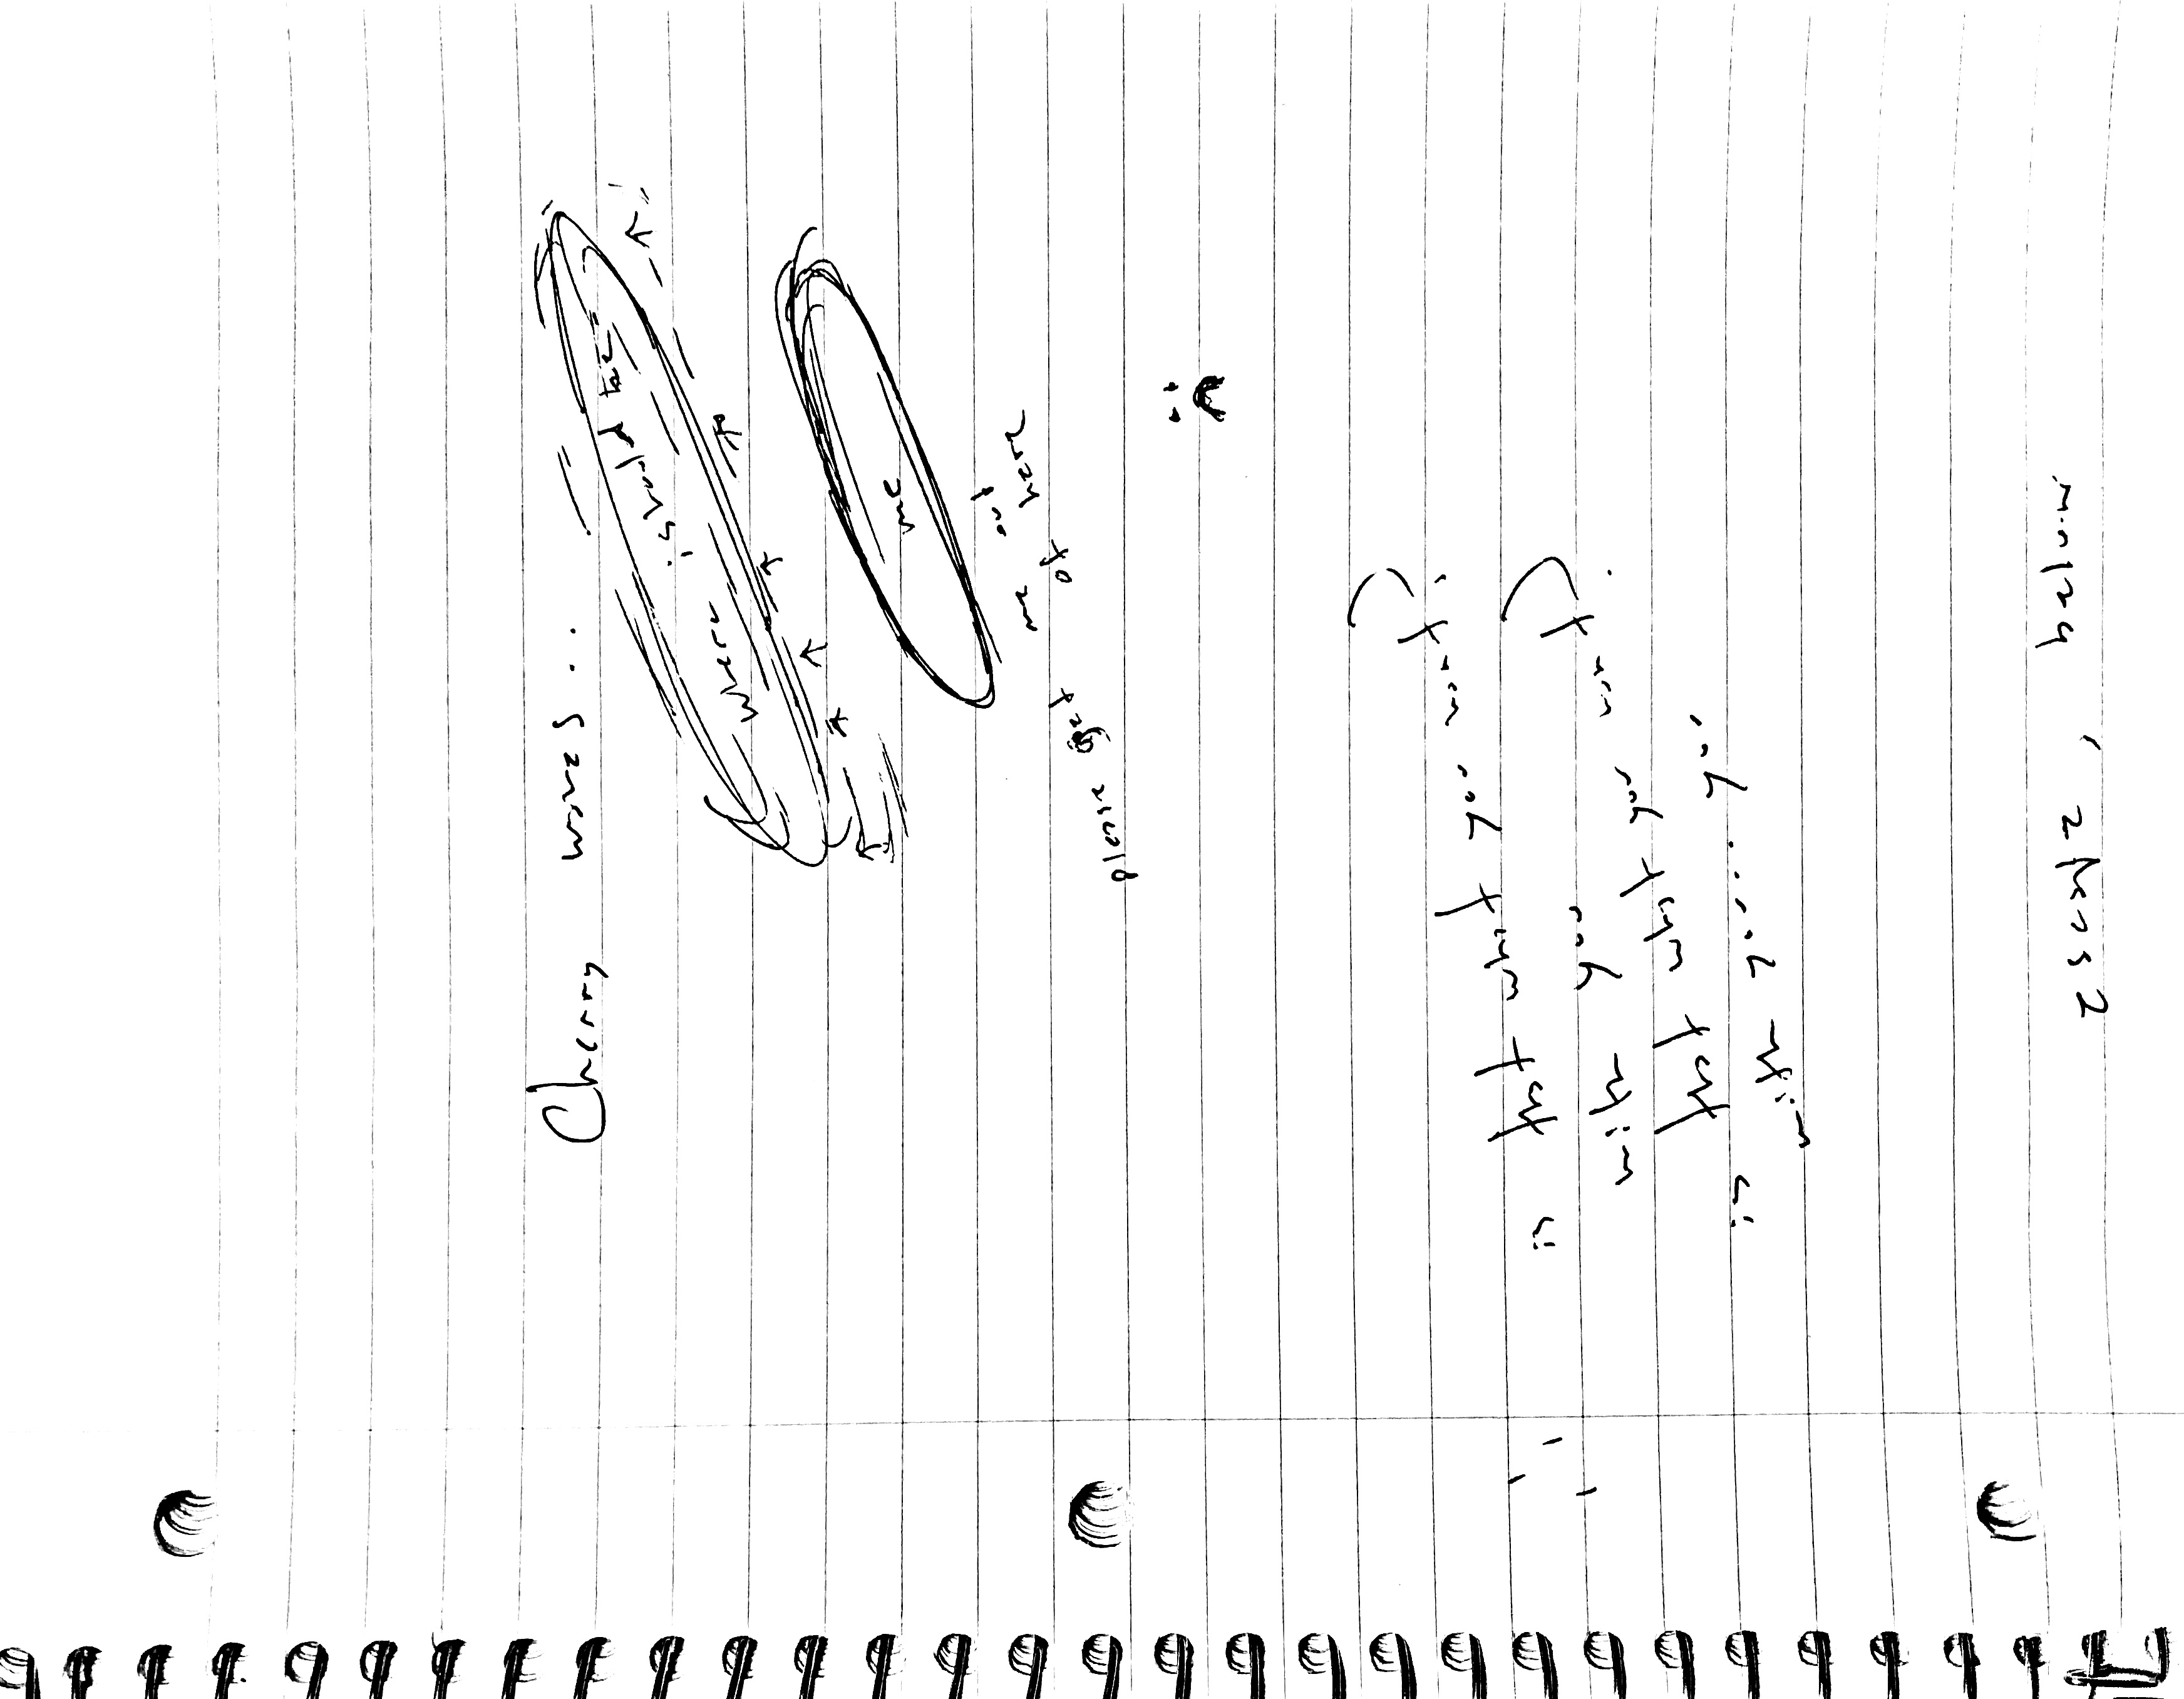 Cherry waves..
where i should be
me
please get me out
of here
is that what you want?
with you
is that what you want?
with you... you
escape, below